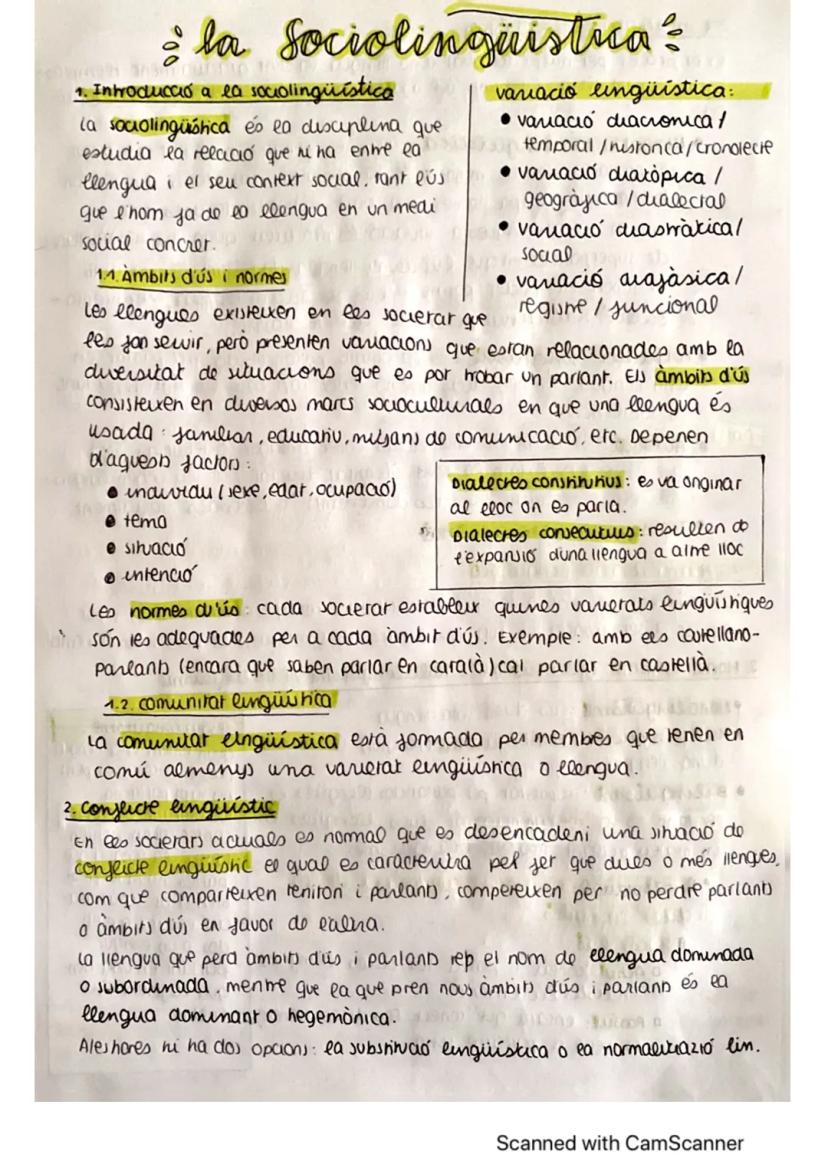 la Sociolingüística
1. Introducció a la sociolingüística
la sociolingüística és la disciplina que
estudia la relació que hi ha entre la
llengua i el seu context social, tant l'ús
que l'hom fa de la llengua en un medi
social concret.
variació lingüística:
• variació diacrònica /
temporal / històrica / cronolecte
• variació diatòpica /
geogràfica / dialectal
• variació diastràtica /
social
• variació diafàsica /
registre / funcional
1.1. Àmbits d'ús i normes
Les llengues existeixen en les societat que
les fan servir, però presenten variacions que estan relacionades amb la
diversitat de situacions que es pot trobar un parlant. Els àmbits d'ús
consisteixen en diversos marcs socioculturals en que una llengua és
usada: familiar, educatiu, mitjans de comunicació, etc. Depenen
d'aquests factors:
• individu (sexe, edat, ocupació)
• tema
• situació
• intenció
Dialectes constitutius: es va originar
al lloc on es parla.
Dialectes consecutius: resulten de
l'expansió d'una llengua a altre lloc
Les normes d'ús: cada societat estableix quines varietats lingüístiques
són les adequades per a cada àmbit d'ús. Exemple: amb els castellano-
parlants (encara que saben parlar en català) cal parlar en castellà.
1.2. comunitat lingüística
La comunitat lingüística està formada per membes que tenen en
comú almenys una varietat lingüística o llengua.
2. Conflicte lingüístic
En les societats actuals es normal que es desencadeni una situació de
conflicte lingüístic el qual es caracteritza pel fet que dues o més llenges,
com que comparteixen territori i parlants, competeixen per no perdre parlants
o àmbits d'ús en favor de l'altra.
La llengua que perd àmbits d'ús i parlants rep el nom de llengua dominada
o subordinada, mentre que la que pren nous àmbits d'ús i parlants és la
llengua dominant o hegemònica.
Aleshores hi ha dos opcions: la substitució lingüística o la normalització lin.
Scanned with CamScanner